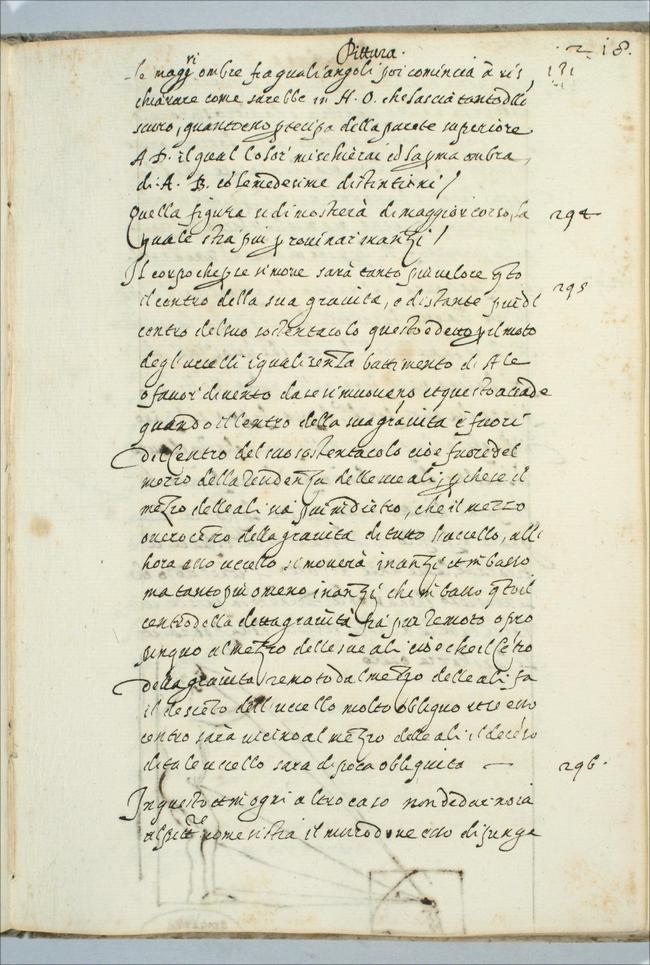 Pittura. 218.
le maggri ombre fra quali angoli poi comincia à ris 181
chiarare come sarebbe in H. O. che lascia tanto dllo
scuro, quanto eno ptecipa della parete superiore
A D. il qual color' mischierai cō la pma ombra,
di A. B. cō le medesime distintioni /
Quella figura si dimosterà di maggior corso, la 294
quale stia piu p rovinar inanzi /
Il corpo che p se si move sarà tanto piu veloce qto 295
il centro della sua gravita, è distante piu dl
centro del suo sostentacolo questo è detto p il moto
degli uccelli i quali senza battimento di Ale
o favor' di vento da se si muoveno et questo acade
quando il centro della sua gravita è fuori
dil Centro del suo sostentacolo cioè fuore del
mezzo della dell sue ali, p che se il
mezzo delle ali na piu indietro, chè il mezzo
overo cētro della gravita di tutto l'uccello, all
hora esso uccello si moverà inanzi et in basso
ma tanto piu o meno inanzi che in basso qto il
centro della detta gravità fia piu remoto o pro
pinquo al mezzo delle sue ali cioè che il Cētro
della gravita remoto dal mezzo delle ali fa
il desceto dell'uccello molto obliquo et se esso
centro sarà vicino al mezzo delle ali il decēso
di tale uccello sara di poca obliquita — 296.
In questo et in ogni altro caso non dede
al pittre come si stia il muro dove esso dipinge